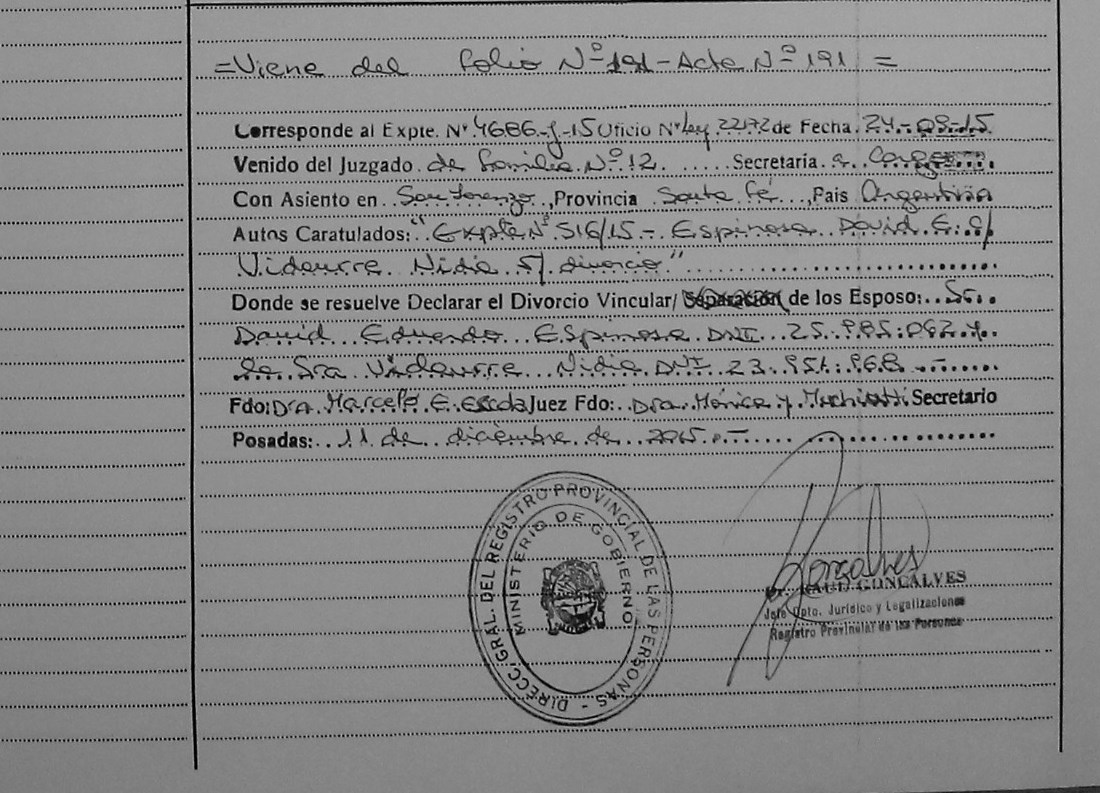 =Viene del folio Nº 191 - Acta Nº 191 =
Corresponde al Expte. Nº 4686-J-15 Oficio Nº Ley 22172 de Fecha 24-09-15
Venido del Juzgado de familia Nº 12 Secretaria a Cargo
Con Asiento en San Lorenzo, Provincia Santa Fé, Pais Argentina
Autos Caratulados: "Expte Nº 516/15 - Espinosa David E. C/
Vidaurre Nidia S/ divorcio"
Donde se resuelve Declarar el Divorcio Vincular/ Separación de los Esposo: Sr.
David Eduardo Espinosa DNI 25.985.062 y
la Sra Vidaurre Nidia DNI 23.951.968 -
Fdo: Dra. Marcela E. Escola Juez Fdo: Dra. Mónica y Secretario
Posadas: 11 de diciembre de 2015.-
DIRECC. GRAL. DEL REGISTRO PROVINCIAL DE LAS PERSONAS -
MINISTERIO DE GOBIERNO
Gonçalves
Dr. RAUL GONCALVES
Jefe Dpto. Jurídico y Legalizaciones
Registro Provincial de las Personas